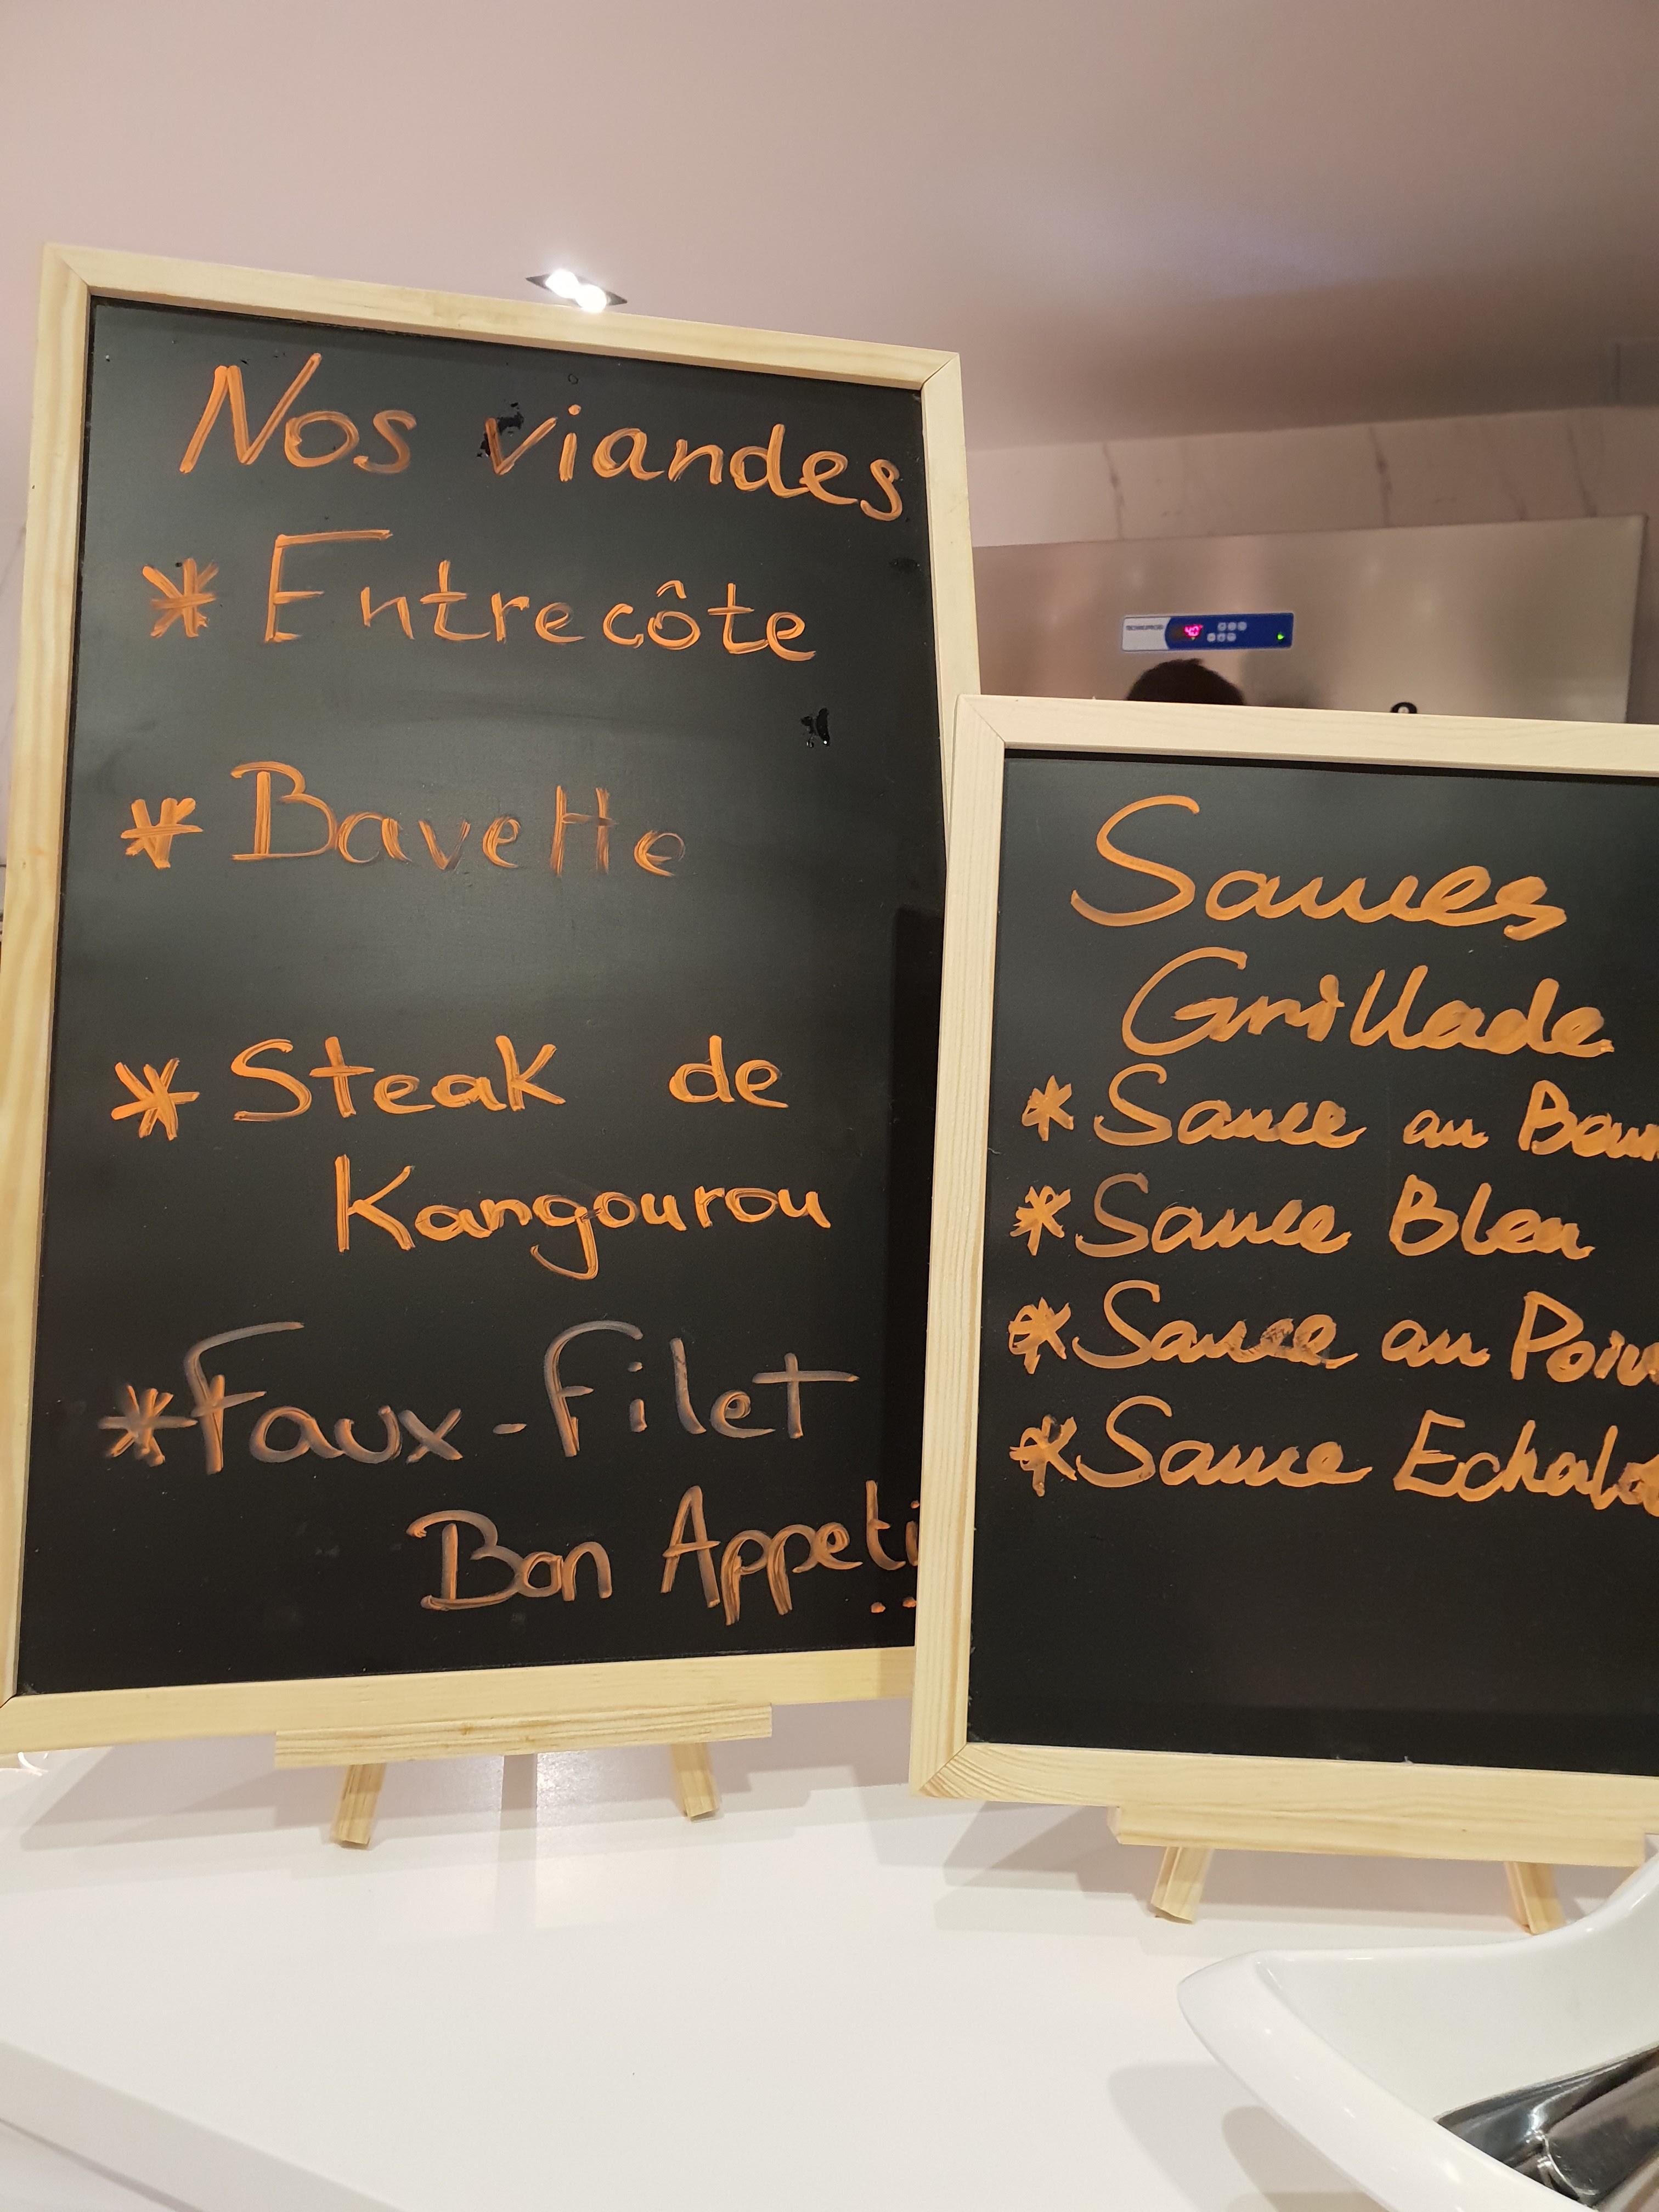 Nos viandes
* Entrecôte
* Bavette
* Steak de
Kangourou
* Faux-Filet
Bon Appeti
..
Sauces
Grillade
* Sauce au
* Sauce Bleu
* Sauce au Poiv
* Sauce Echalo
40